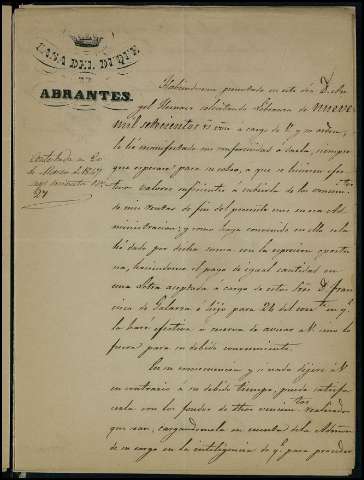 CASA DEL DUQUE
DE
ABRANTES.
Contestada en 20
de Marzo de 1847
27
Habiéndoseme presentado en este día D. Án-
gel Herrero solicitando Libranza de nueve
mil setecientos rs. von a cargo de V. y su orden,
le he manifestado mi conformidad á darla, siempre
que esperase para su cobro, a que se hiciesen efec-
tivos valores suficientes á cubrirla de los vencimtos
de mis rentas de fin del presente mes en esa Ad-
ministracion; y como haya convenido en ello se la
he dado por dicha suma con la espresion oportu-
na, haciéndome el pago de igual cantidad en
una Letra aceptada á cargo de estos Sres. D. Fran-
cisco de Galarza é hijo para 24 del corrte en q.
la haré efectiva á reserva de avisar a V. como lo
fuera para su debido conocimiento.
En su consecuencia y si nada dijere á V.
en contrario á su debido tiempo, puede satisfa-
cerla con los fondos de dhos vencimtos realizados
que sean, cargandomela en cuenta de la Admon
de su cargo en la inteligencia de q. para proceder